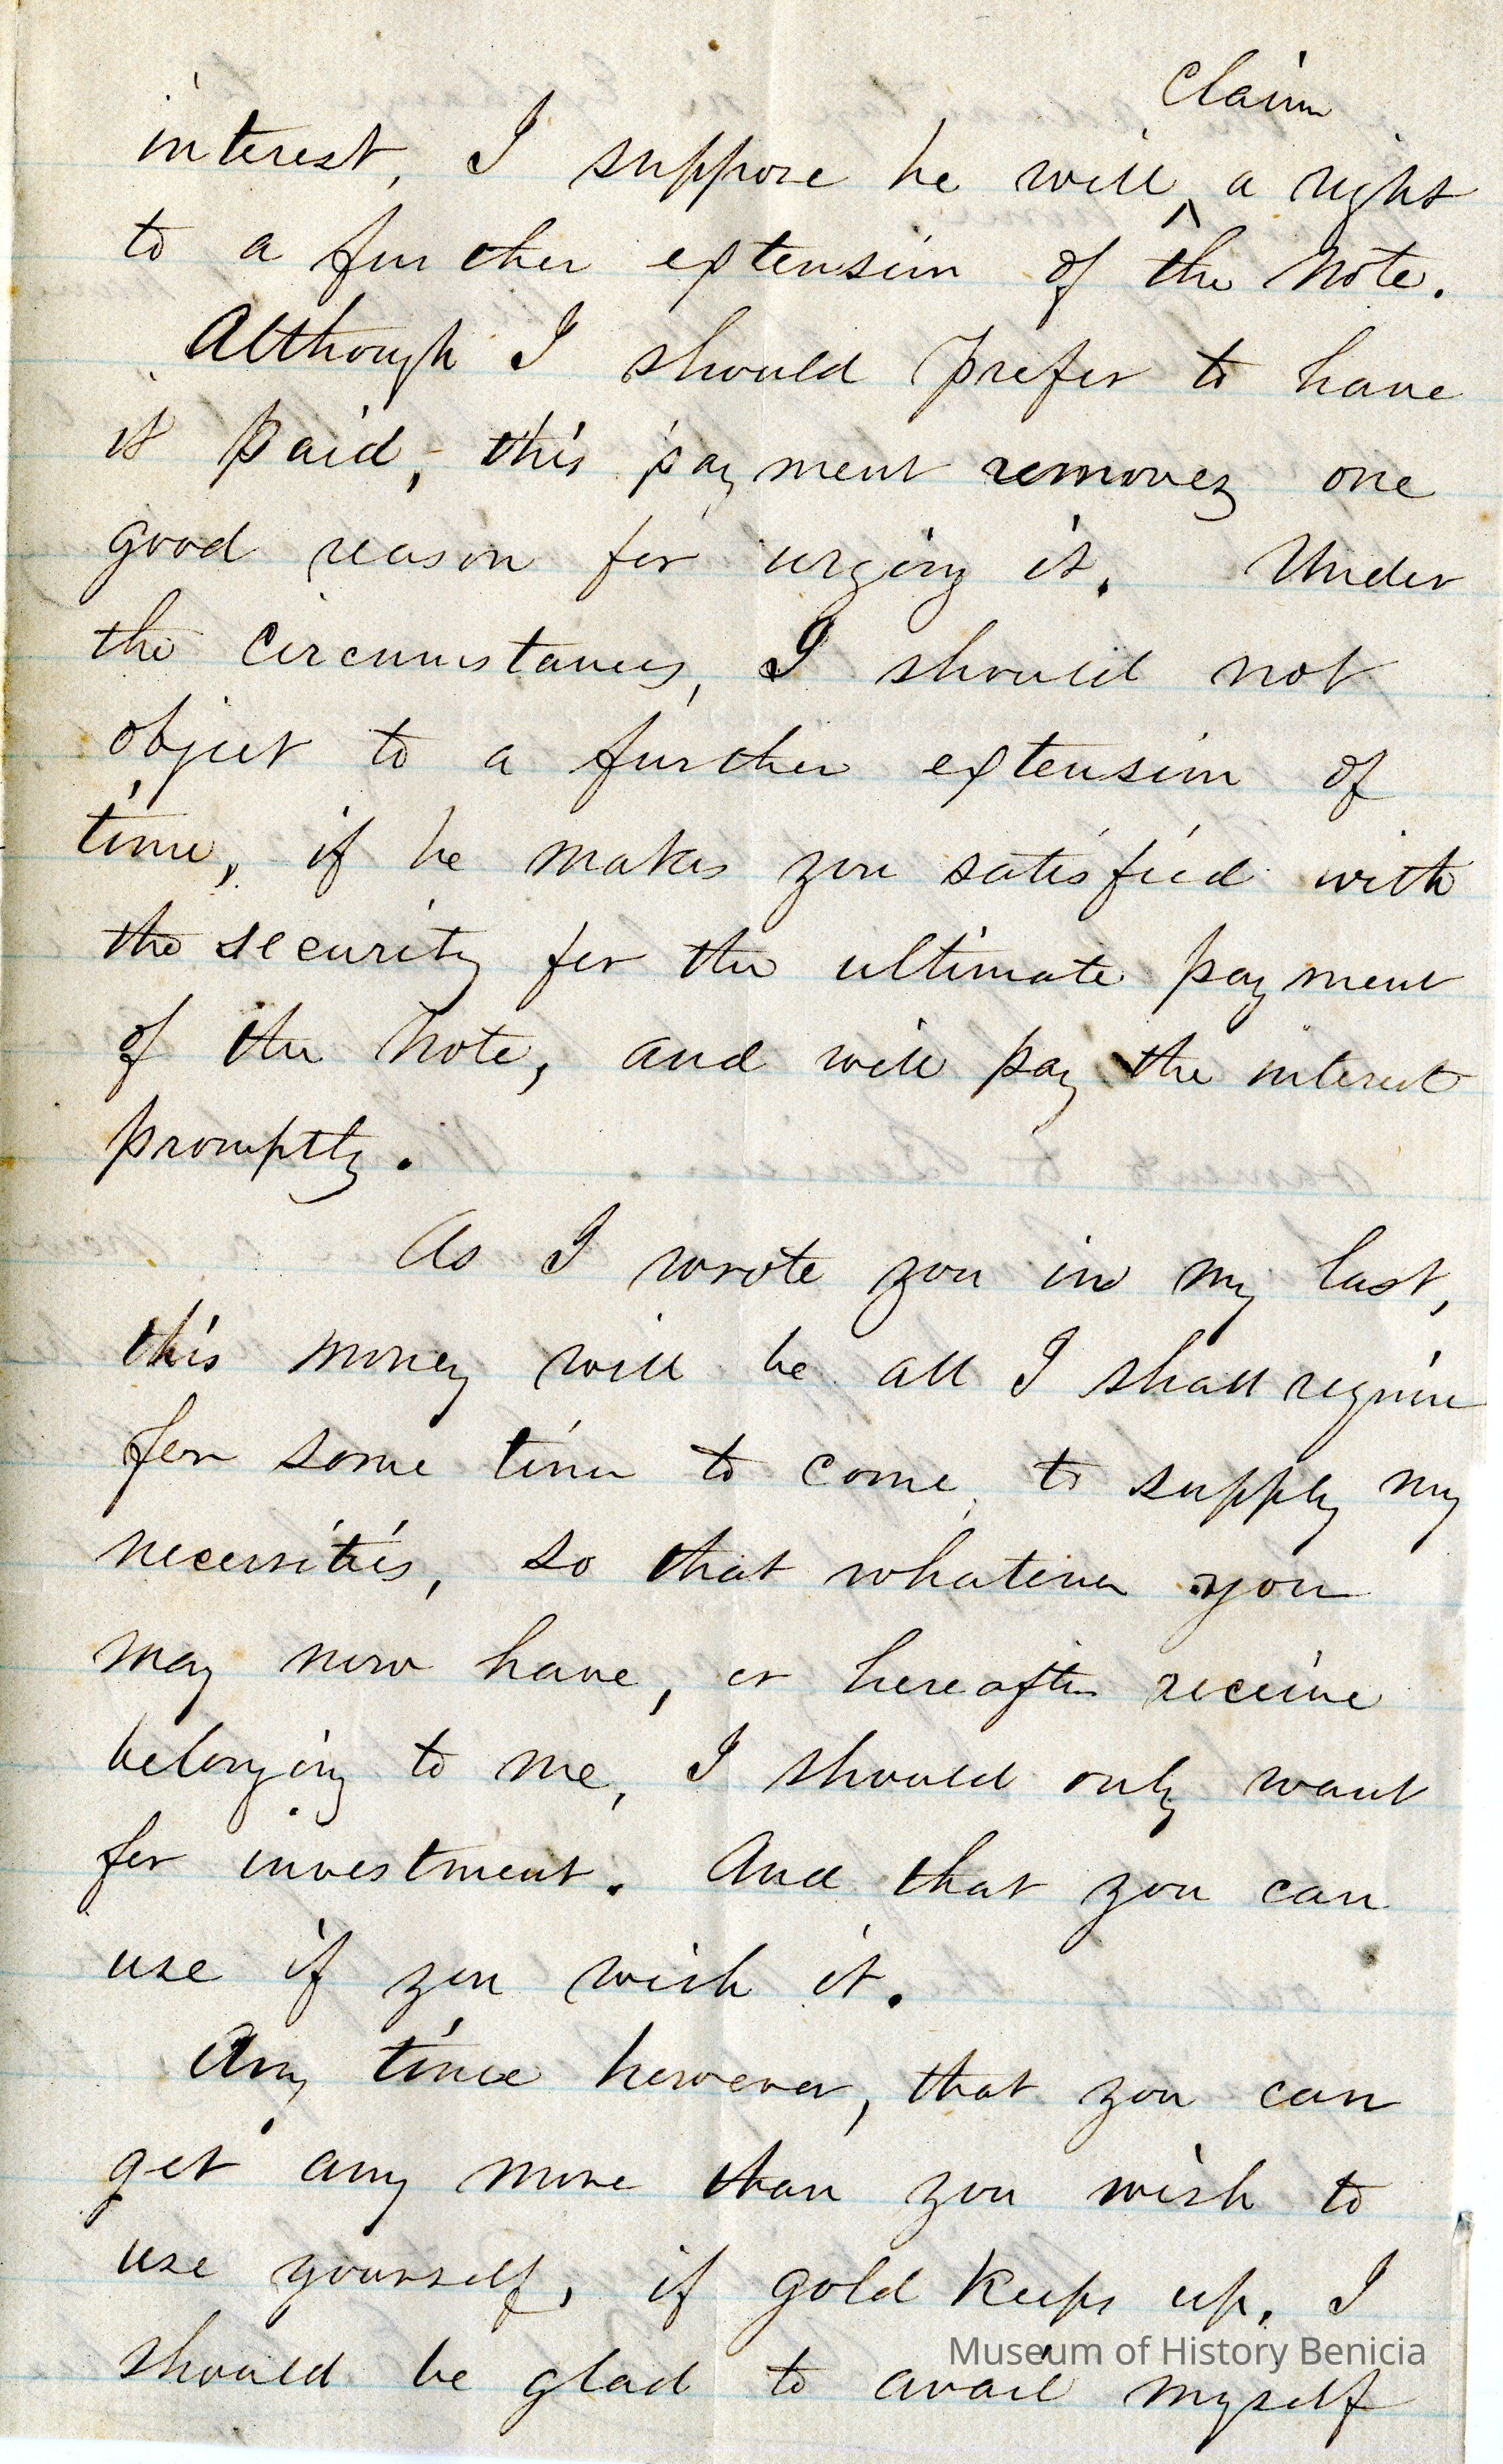 Claim
interest, I suppose he will ^ a right
to a further extension of the note.
Although I should prefer to have
it paid, - this payment removes one
good reason for urging it. Under
the circumstances, I should not
object to a further extension of
time, if he makes you satisfied with
the security for the ultimate payment
of the note, and will pay the interest
promptly.
As I wrote you in my last,
this money will be all I shall require
for some time to come, to supply my
necessities, so that whatever you
may now have, or hereafter receive
belonging to me, I should only want
for investment. And that you can
use if you wish it.
Any time however, that you can
get any more than you wish to
use yourself, if gold keeps up, I
should be glad to avail myself
Museum of History Benicia